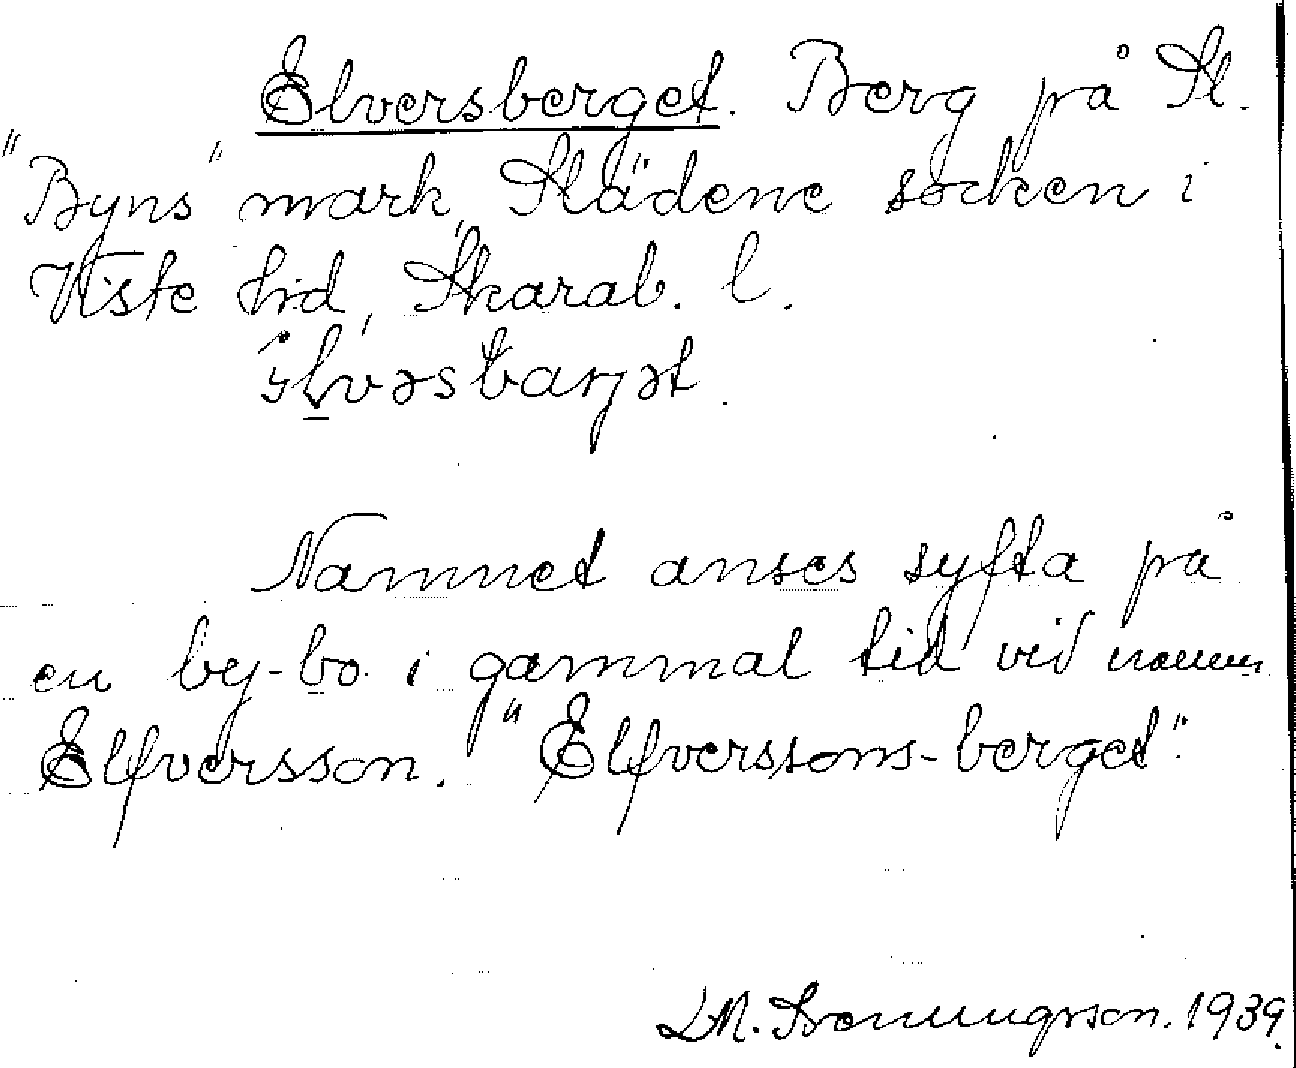 Elversberget. Berg på Sl.
"Byns" mark, Slädene socken i
Viste hd, Skarab. l.
Namnet anses syfta på
en by-bo i gammal tid vid namn
Elfversson. "Elfverssons-berget".
1939.